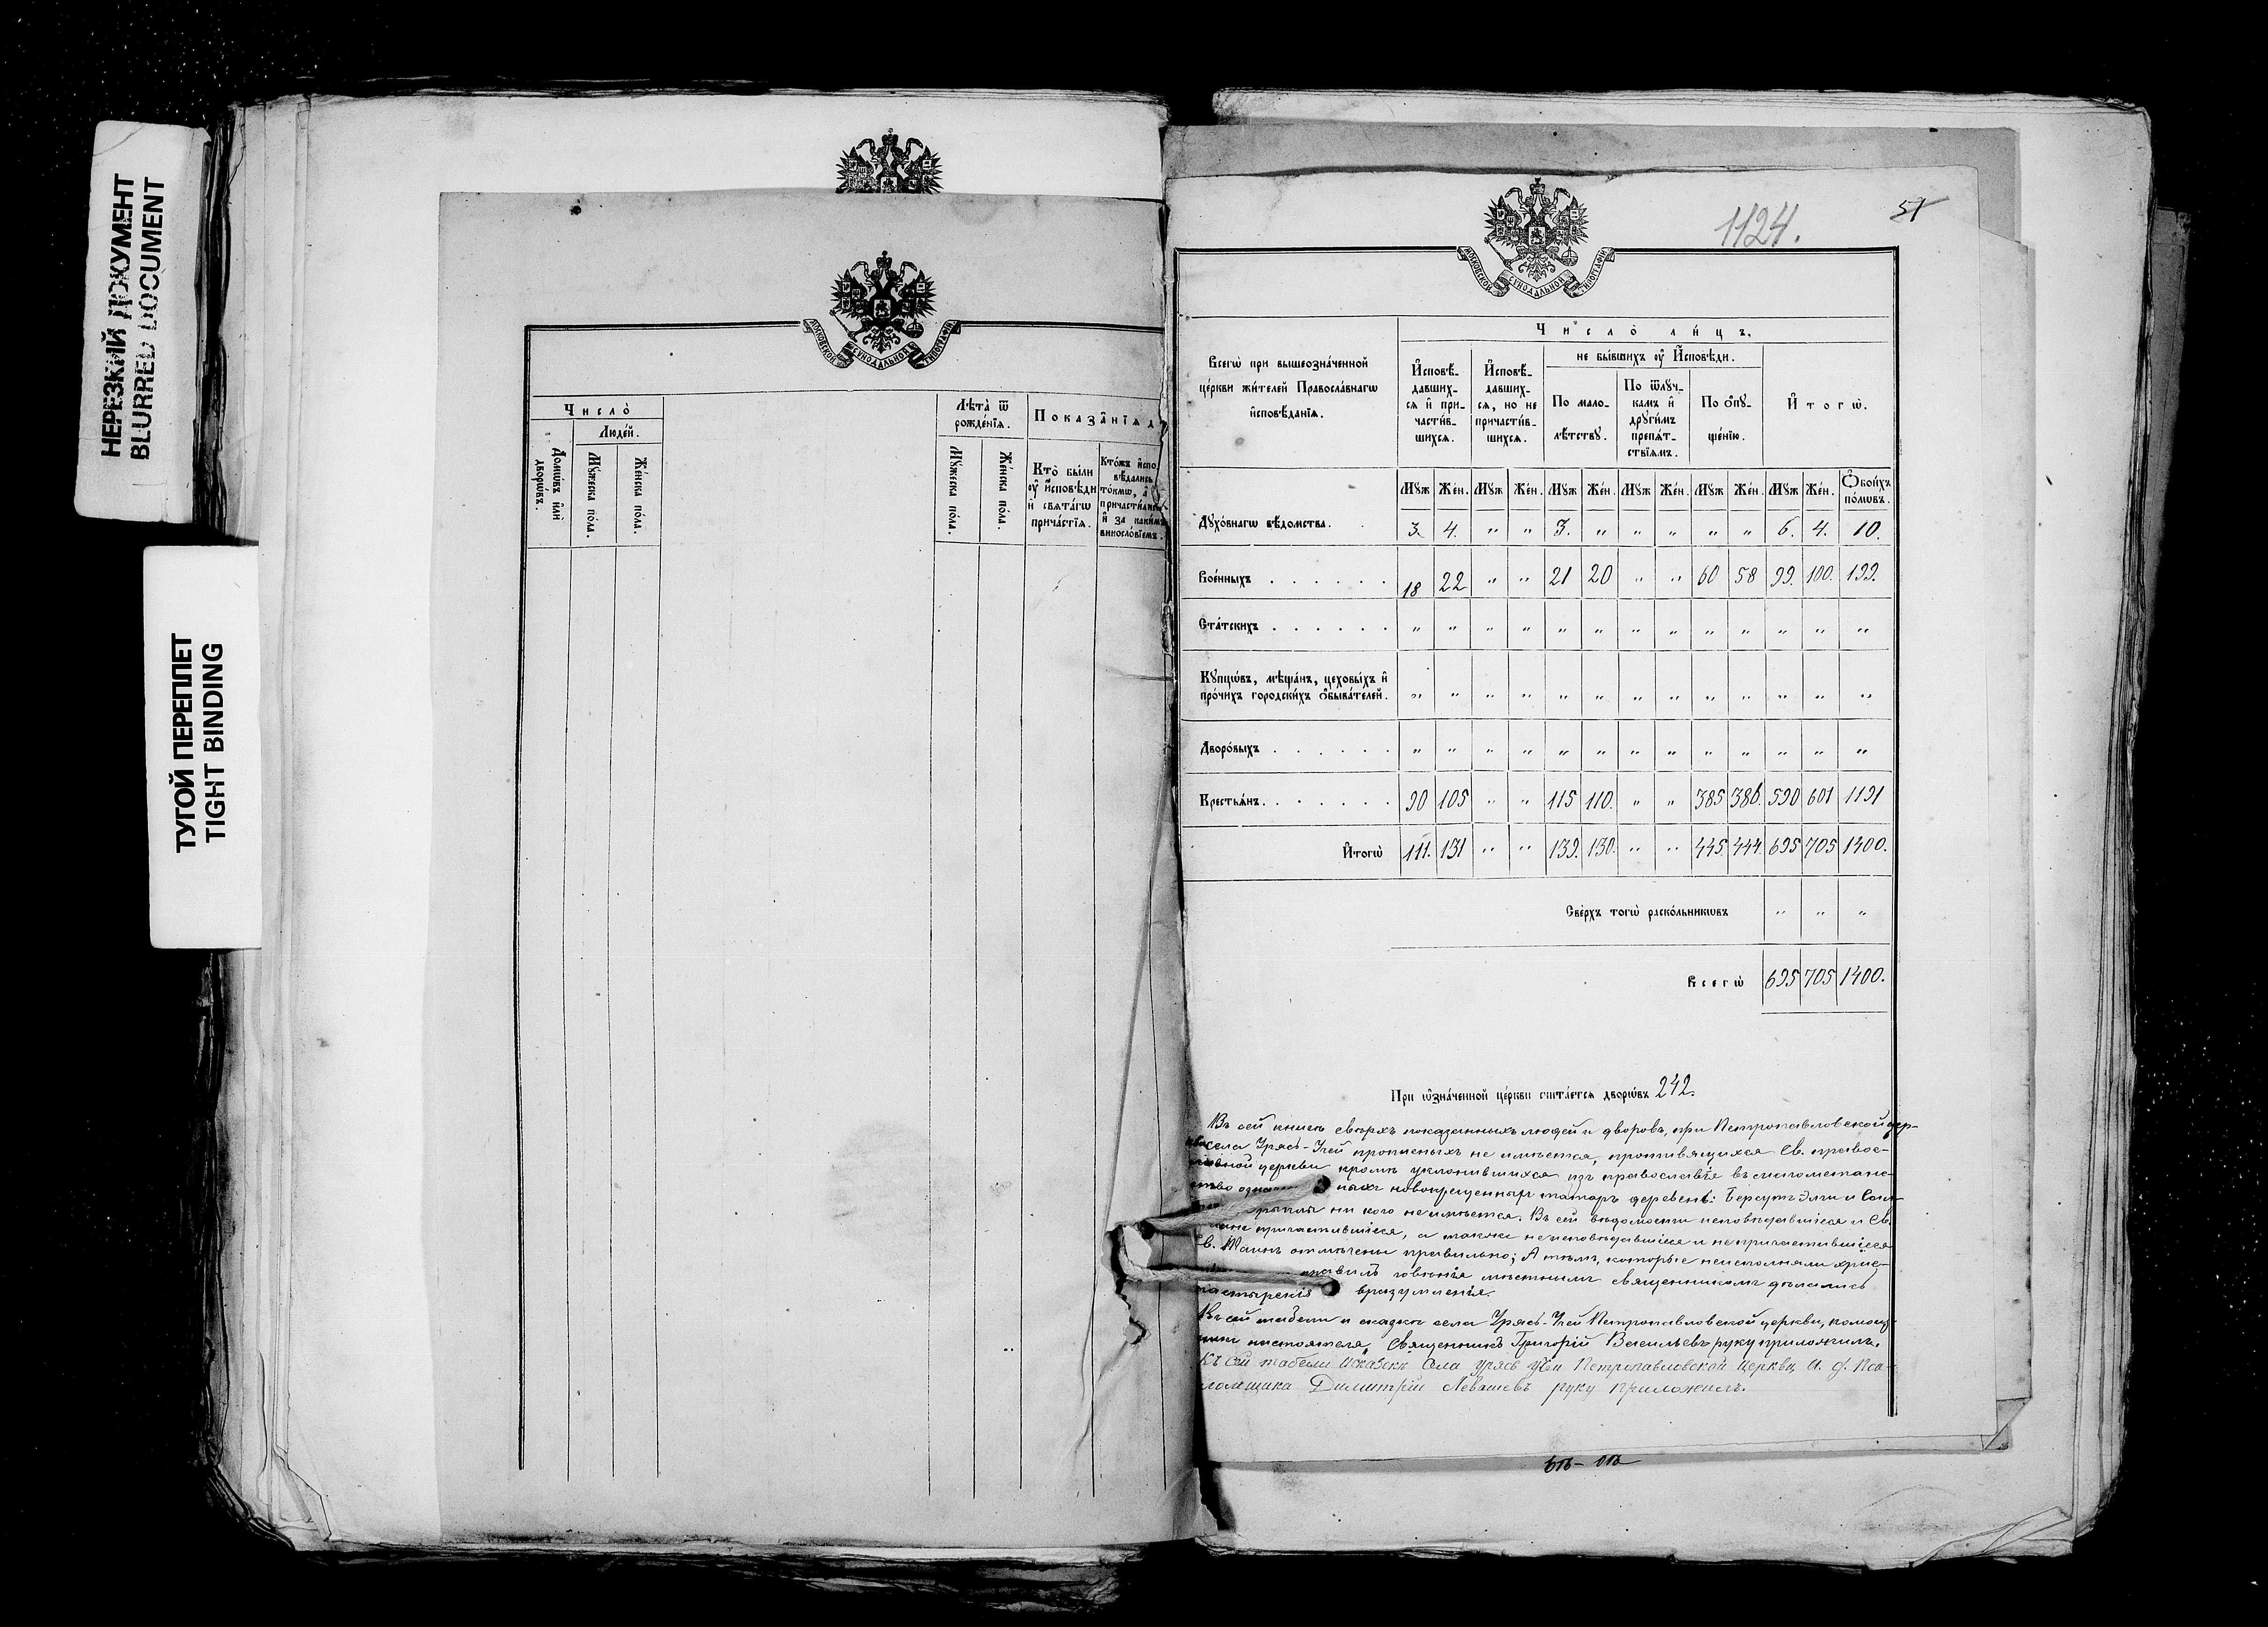 НЕРЕЗКИЙ ДОКУМЕНТ
BLURRED DOCUMENT
ТУГОЙ ПЕРЕПЛЕТ
TIGHT BINDING
МОСКОВСКОЙ СѴНОДАЛЬНОЙ ТИПОГРАФІИ
Число̀
Люде́й.
Домѡ́въ и҆лѝ дворѡ́въ.
Мꙋ́жеска по́ла.
Же́нска по́ла.
Лѣ́та ѿ рожде́нїѧ.
Мꙋ́жеска по́ла.
Же́нска по́ла.
Показа̑нїѧ
Кто̀ бы́ли
ᲂу҆ И҆́сповѣди
и҆ свѧта́гѡ
прича́стїѧ.
Кто́жъ и҆спо-
вѣ́дались
то́кмѡ, а҆
и҆ за каки́мъ
виносло́вїемъ.
1124.
51
МОСКОВСКОЙ СѴНОДАЛЬНОЙ ТИПОГРАФІИ
Всегѡ̀ при вышеозна́ченной
це́ркви жи́телей Правосла́внагѡ
и҆сповѣ́данїѧ.
Число̀ ли́цъ.
И҆сповѣ́-
давших-
сѧ и҆ при-
части́в-
шихсѧ.
И҆сповѣ́-
давших-
сѧ, но не
причасти́в-
шихсѧ.
не бы́вшихъ ᲂу҆ И҆́сповѣди.
По мало-
лѣ́тствꙋ.
По ѿлꙋч-
камъ и҆
дрꙋги́мъ
препѧ́т-
ствїѧмъ.
По ѻ҆пꙋ-
ще́нїю.
И҆тогѡ̀.
Мꙋж Же́н. Мꙋж Же́н. Мꙋж Же́н. Мꙋж Же́н. Мꙋж Же́н. Мꙋж Же́н. Ѻ҆бои́хъ по́лѡвъ.
Дꙋхо́внагѡ вѣ́домства. 3. 4. " " 3. " " " " " 6. 4. 10.
Вое́нныхъ . . . . . . 18 22 " " 21 20 " " 60 58 99. 100. 199.
Ста́тскихъ . . . . . . " " " " " " " " " " " " "
Кꙋпцѡ́въ, мѣща́нъ, цеховы́хъ и҆
про́чихъ городски́хъ ѻ҆быва́телей. " " " " " " " " " " " " "
Дворо́выхъ . . . . . . " " " " " " " " " " " " "
Крестьѧ́нъ. . . . . . . 90 105 " " 115 110. " " 385 386. 590 601 1191
И҆тогѡ̀ 111. 131 " " 139. 130. " " 445 444. 695 705 1400.
Све́рхъ тогѡ̀ раско́льникѡвъ " " "
Всегѡ̀ 695 705 1400.
При ѡ҆зна́ченной це́ркви счита́етсѧ дворѡ́въ 242.
Въ сей книгѣ сверхъ показанныхъ людей и дворовъ, при Петропавловской цер-
кви села Урясь-Учей прописныхъ не имѣется, противящихся Св. правос-
лавной церкви кромѣ уклонившихся изъ православія въ магометанс-
тво ныхъ новокрещенныхъ татаръ деревень: Берсутъ Элги и
ни кого не имѣется. Въ сей вѣдомости исповѣдавшіеся и Св.
причастившіеся, а также неисповѣдавшіеся и не причастившіеся
Св. Таинъ отмѣчены правильно; А тѣмъ, которые неисполняли хрис-
говѣнія мѣстнымъ священникомъ дѣлались
пастырскія вразумленія.
Къ сей табели и сказкѣ села Урясь-Учей Петропавловской церкви, помощ-
никъ настоятеля, Священникъ Григорій Васильевъ руку приложилъ.
Къ сей табели и сказкѣ Села Урясь Учи Петропавловской Церкви, И. д. Пса-
ломщика Димитрій Левашевъ руку приложилъ.